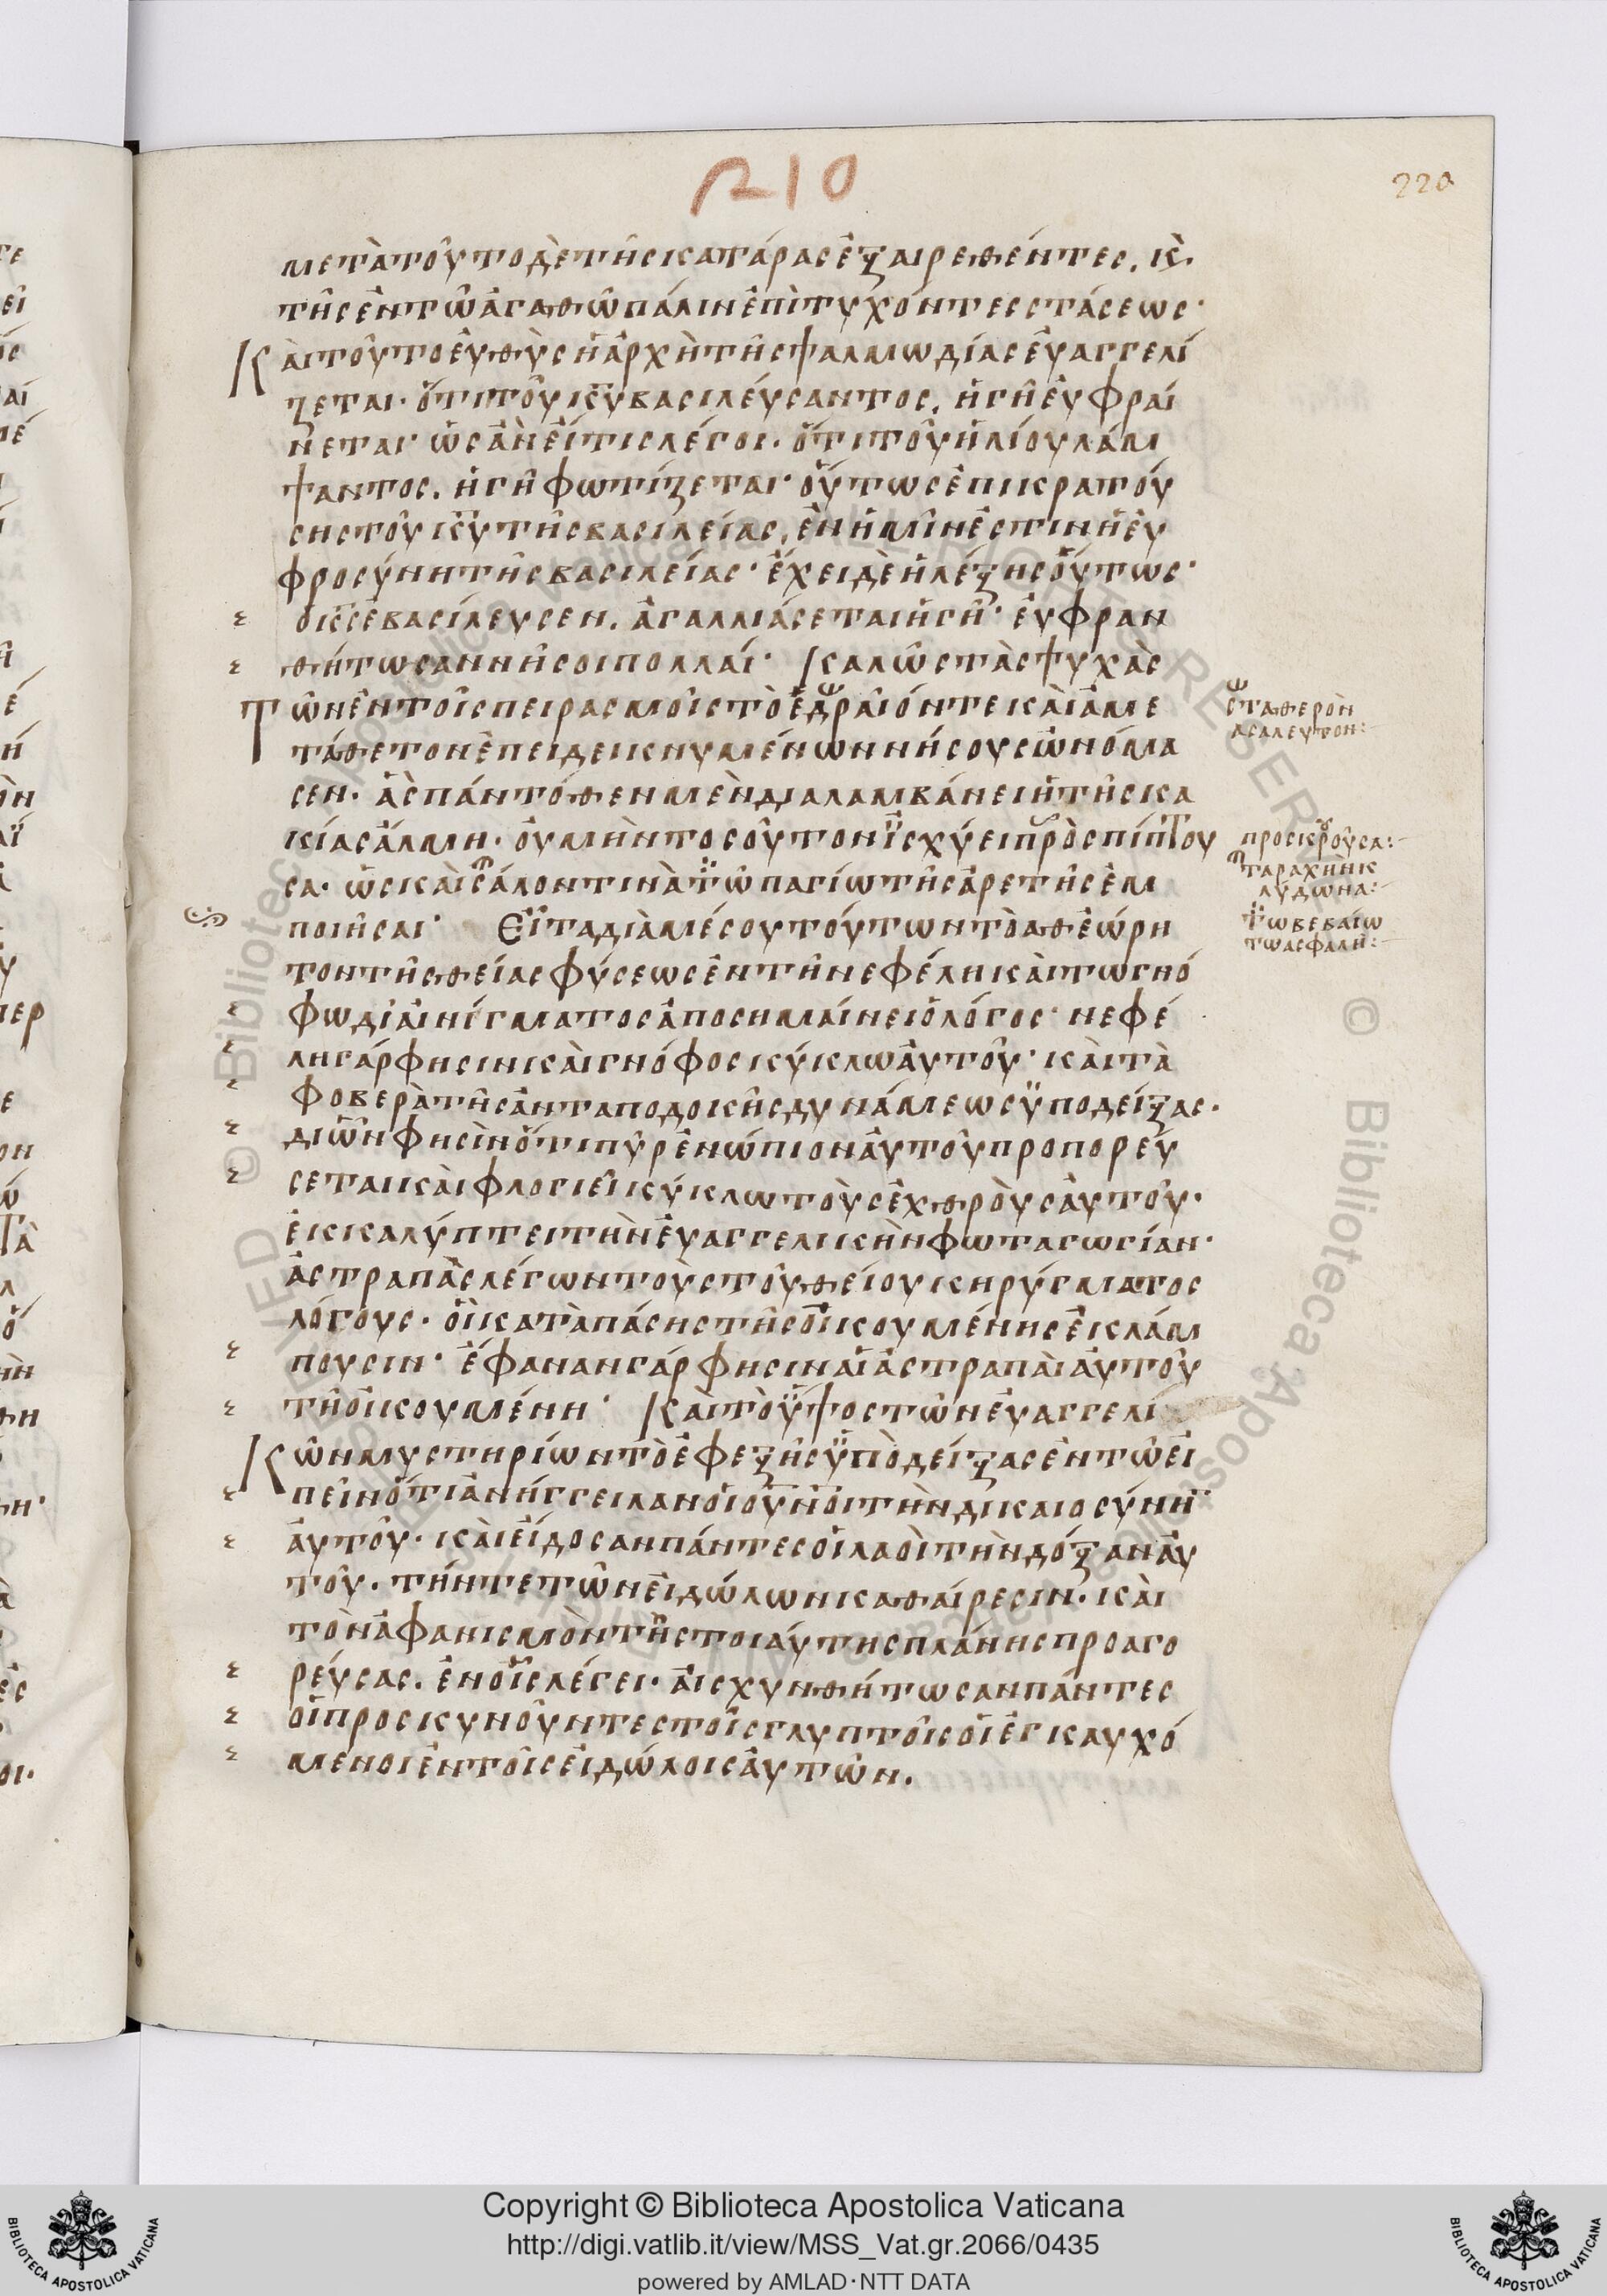 210
220
μετὰ τοῦτο δὲ τῆς κατάρας ἐξαιρεθέντες, κ̀.
τῆς ἐν τῶ ἀγαθῶ πάλιν ἐπιτυχόντες στάσεως·
Καὶ τοῦτο εὐθὺς ἡ ἀρχὴ τῆς ψαλμωδίας εὐαγγελί
ζεται· ὅτι τοῦ κ̅υ̅ βασιλεύσαντος, ἡ γῆ εὐφραί
νεται· ὡς ἂν εἴ τις λέγοι· ὅτι τοῦ ἡλίου λάμ
ψαντος, ἡ γῆ φωτίζεται· οὕτως ἐπικρατού
σης τοῦ κ̅υ̅ τῆς βασιλείας, ἐν ἡμῖν ἐστιν ἡ εὐ
φροσύνη τῆς βασιλείας· ἔχει δὲ ἡ λέξις οὕτως·
ὁ κ̅ς̅ ἐβασίλευσεν, ἀγαλλιάσεται ἡ γῆ· εὐφραν
θήτωσαν νῆσοι πολλαί· Καλῶς τὰς ψυχὰς
Τῶν ἐν τοῖς πειρασμοῖς τὸ ἑδραῖόν τε καὶ ἀμε
τάθετον ἐπιδεικνυμένων νήσους ὠνόμα
σεν· ἃς πάντοθεν μὲν διαλαμβάνει ἡ τῆς κα
κίας ἅλμη· οὐ μὴν τοσοῦτον ἰσχύει προσπίπτου
σα· ὡς καὶ σάλον τινὰ τῶ παγίω τῆς ἀρετῆς ἐμ
ποιῆσαι· Εἶτα διὰ μέσου τούτων τὸ ἀθεώρη
τον τῆς θείας φύσεως ἐν τῆ νεφέλη καὶ τω γνό
φω δι' αἰνίγματος ἀποσημαίνει ὁ λόγος· νεφέ
λη γάρ φησιν καὶ γνόφος κύκλω αὐτοῦ· καὶ τὰ
φοβερὰ τῆς ἀνταποδοκῆς δυνάμεως ὑποδείξας·
δι' ὧν φησὶν ὅτι πῦρ ἐνώπιον αὐτοῦ προπορεύ
σεται καὶ φλογιεῖ κύκλω τοὺς ἐχθροὺς αὐτοῦ·
ἐκκαλύπτει τὴν εὐαγγελικὴν φωταγωγίαν·
ἀστραπὰς λέγων τοὺς τοῦ θείου κηρύγματος
λόγους· οἳ κατὰ πάσης τῆς οἰκουμένης ἐκλάμ
πουσιν· ἔφαναν γάρ φησιν αἱ ἀστραπαὶ αὐτοῦ
τῆ οἰκουμένη· Καὶ τὸ ὕψος τῶν εὐαγγελι
Κῶν μυστηρίων τὸ ἐφεξῆς ὑποδείξας ἐν τῶ εἰ
πεῖν ὅτι ἀνήγγειλαν οἱ οὐνοι τὴν δικαιοσύνην
αὐτοῦ· καὶ εἴδοσαν πάντες οἱ λαοὶ τὴν δόξαν αὐ
τοῦ. τήν τε τῶν εἰδώλων καθαίρεσιν· καὶ
τὸν ἀφανισμὸν τῆς τοιαύτης πλάνης προαγο
ρεύσας. ἐν οἷς λέγει· αἰσχυνθήτωσαν πάντες
οἱ προσκυνοῦντες τοῖς γλυπτοῖς οἱ ἐγκαυχό
μενοι ἐν τοῖς εἰδώλοις αὐτῶν.
σταθερὸν
ασαλευτον:
προσκρούσα:
ταραχὴν κ
λύδωνα:
τω βεβαίω
τω ασφαλῆ:
Copyright © Biblioteca Apostolica Vaticana
http://digi.vatlib.it/view/MSS_Vat.gr.2066/0435
powered by AMLAD·NTT DATA